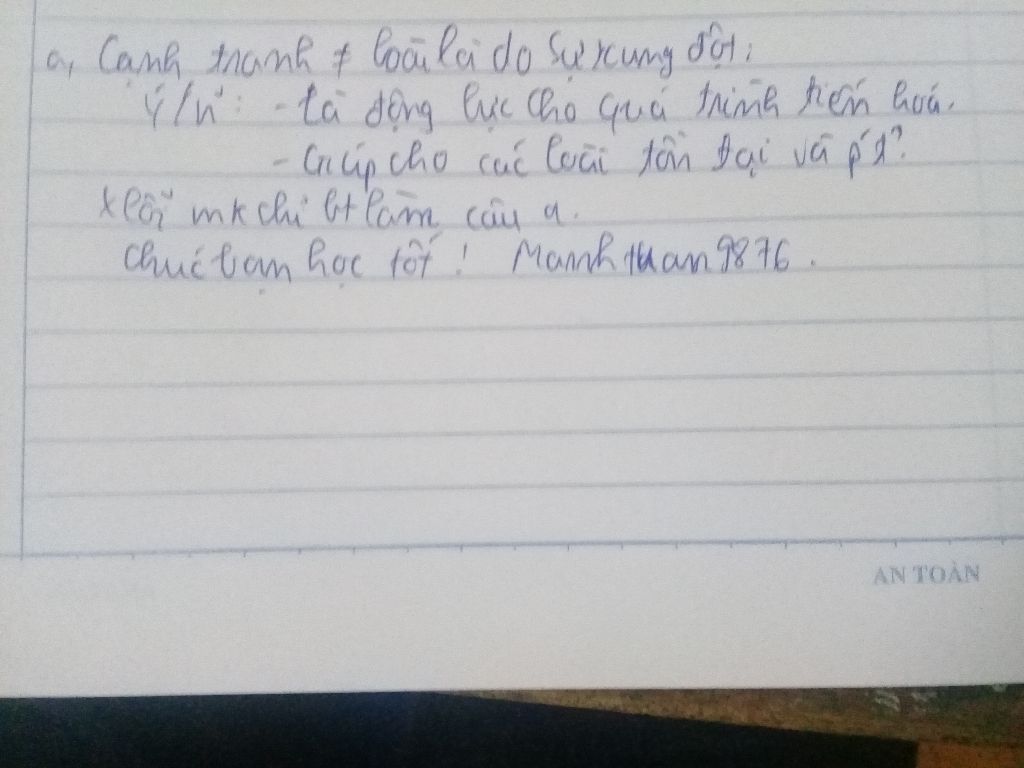 a, Cạnh tranh ≠ loài là do sự xung đột:
Ý/n²: - Là động lực cho quá trình tiến hoá.
- Giúp cho các loài tồn tại và p't².
Xlỗi mk chỉ bt làm câu a.
Chúc bạn học tốt! Manhtuan9876.
AN TOÀN